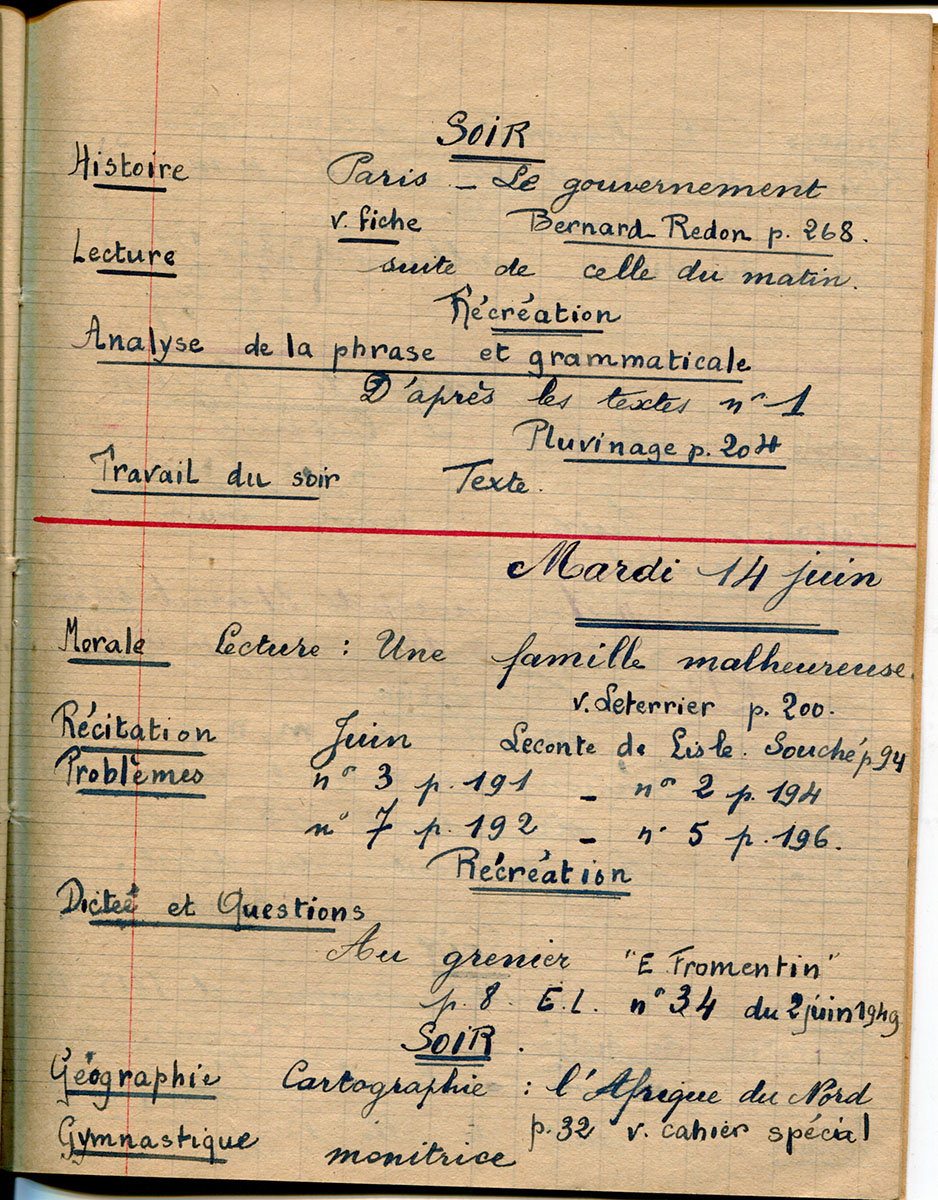 SOIR
Histoire Paris - Le gouvernement
v. fiche Bernard Redon p. 268.
Lecture suite de celle du matin.
Récréation
Analyse de la phrase et grammaticale
D'après les textes n° 1
Pluvinage p. 204
Travail du soir Texte.
Mardi 14 juin
Morale Lecture : Une famille malheureuse.
v. Leterrier p. 200.
Récitation Juin Leconte de Lisle. Souché p. 94
Problèmes n° 3 p. 191 - n° 2 p. 194
n° 7 p. 192 - n° 5 p. 196.
Récréation
Dictée et Questions
Au grenier "E Fromentin"
p. 8. E.L. n° 34 du 2 juin 1949
SOIR.
Géographie Cartographie : l'Afrique du Nord
p. 32 v. cahier spécial
Gymnastique monitrice